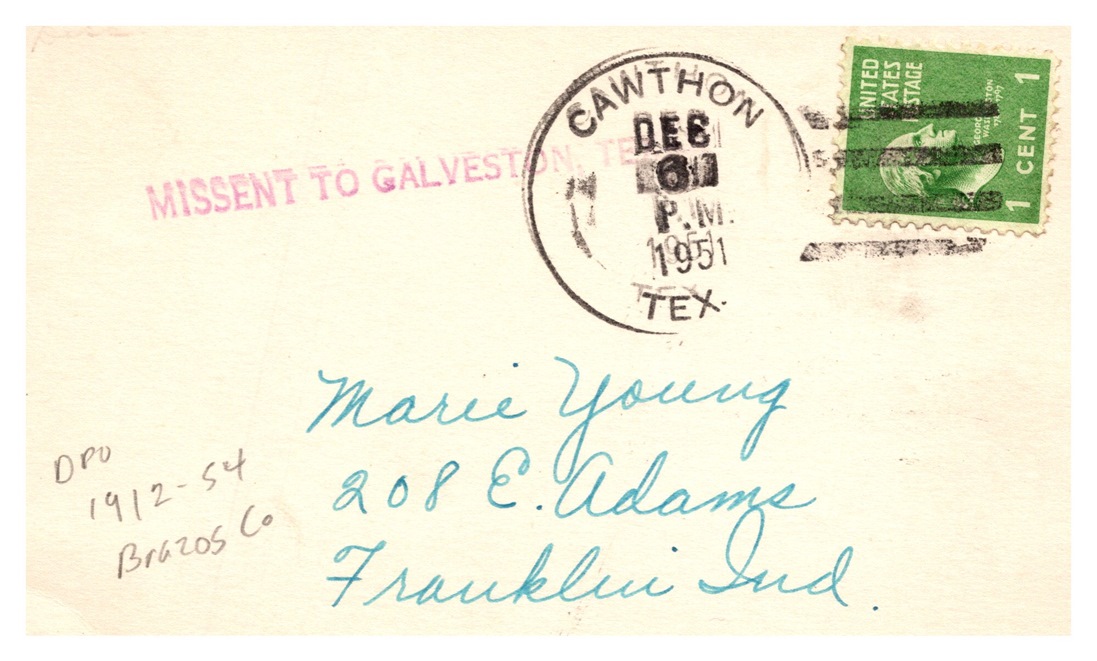 MISSENT TO GALVESTON, TE
CAWTHON
DEC
6
P.M.
1951
TEX.
UNITED
STATES
POSTAGE
GEORGE
WASHINGTON
1 CENT 1
Marie Young
208 E. Adams
Franklin Ind.
DPO
1912-54
Brazos Co